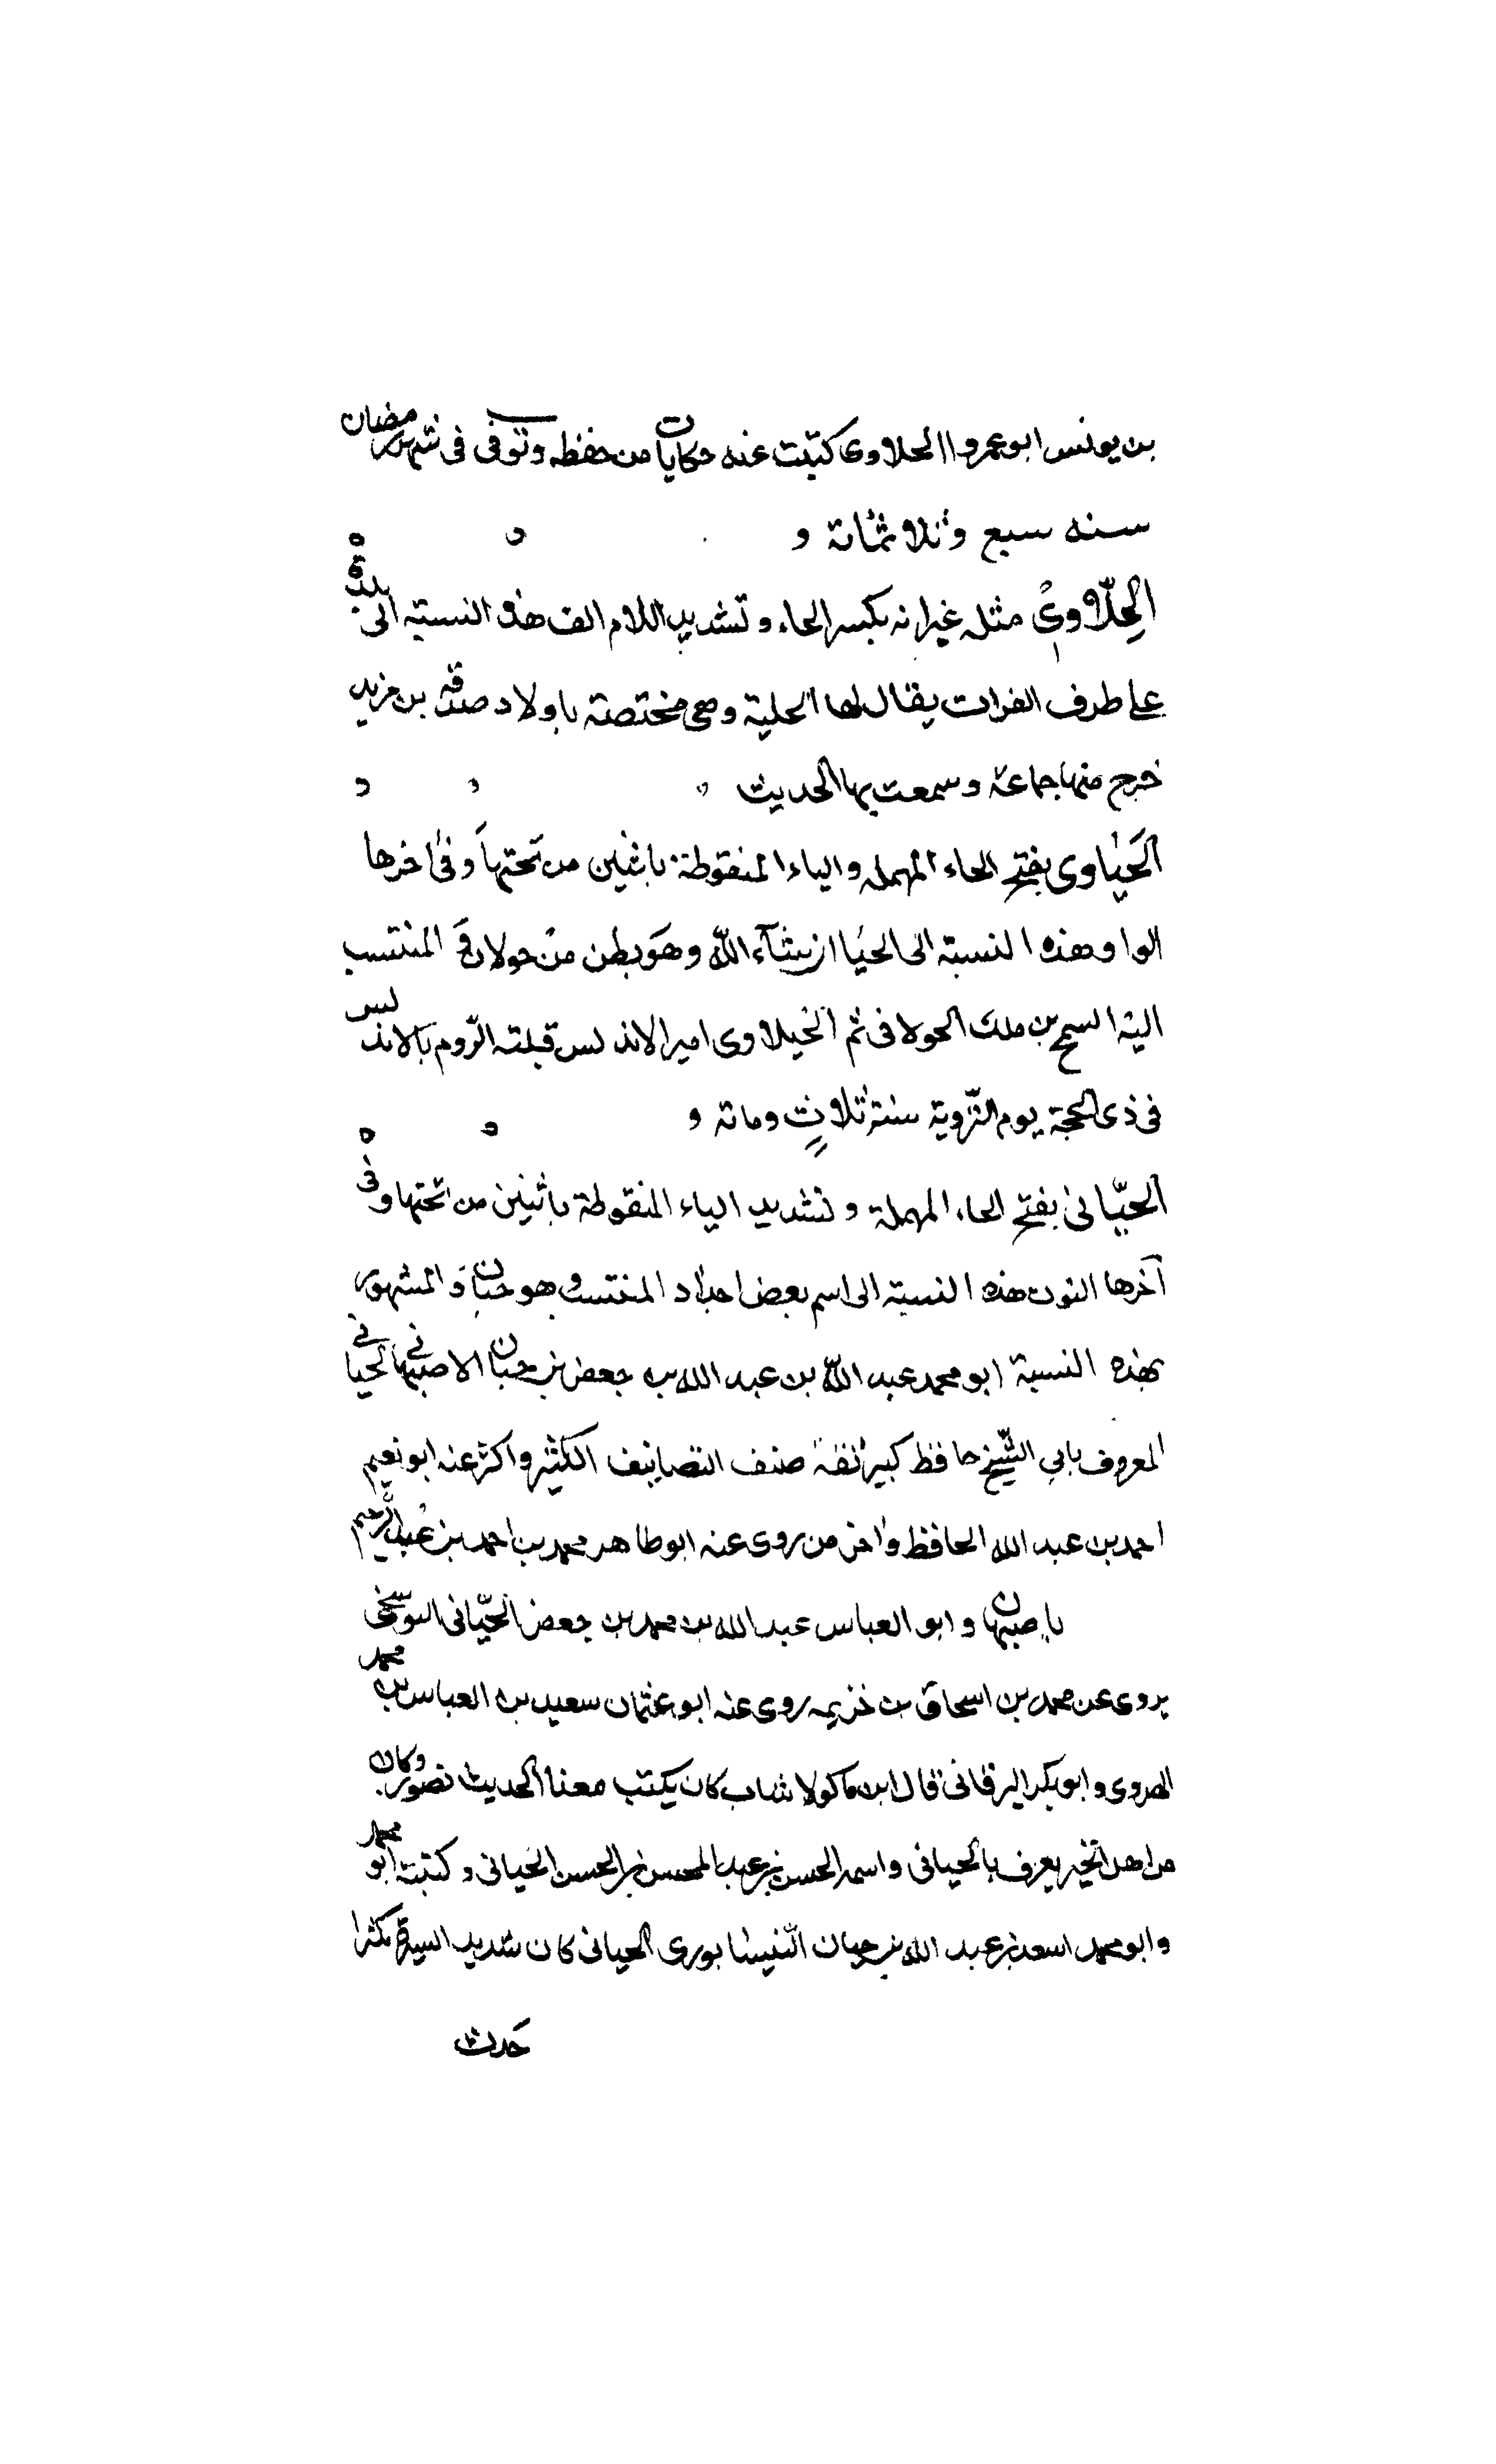 بن يونس ابو عمرو االحلاوى كتبت عنه حكايات من حفظه وتوفى فى شهر رمضان
سنه سبع وثلاثمائة
الحِلّاوى مثله غير انه بكسر الحاء وتشديد اللام الف هذه النسبة الى بلدة
على طرف الفرات يقال لها الحلية وهى مختصة باولاد صدقه بن مزيد
خرج منها جماعة وسمعت بها الحديث
الحَيَاوى بفتح الحاء المهمله والياء المنقوطة باثنين من تحتها وفى اخرها
الواو هذه النسبة الى الحيا ان شآء الله وهو بطن من خولان المنتسب
اليه السمح بن ملك الحولانى ثم الخيلاوى امير الاندلس قبلته الروم بالاندلس
فى ذى الحجة يوم التّروية سنة ثلاث ومائة
الحيّانى بفتح الحاء المهملة وتشديد الياء المنقوطة باثنين من تحتها وفى
آخرها النون هذه النسبة الى اسم بعض اجداد المنتسب وهو حيان والمشهور
بهذه النسبة ابو محمد عبد الله بن عبد الله بن جعفر بن حيان الاصبهانى الحيانى
المعروف بابي الشّيخ حافظ كبير ثقة صنف التصانيف الكثيره واكثر عنه ابو نعيم
احمد بن عبد الله الحافظ واخر من روى عنه ابو طاهر محمد بن احمد بن عبد الرحيم
باصبهان وابو العباس عبد الله بن محمد بن جعفر الحيّانى البوسنجى
يروى عن محمد بن اسحاق بن خزيمه روى عنه ابو عثمان سعيد بن العباس بن محمد
الهروى وابو بكر البرقانى قال ابن ماكولا شاب كان يكتب معنا الحديث بصور وكان
من اهل الخير يعرف بالحيانى واسمه الحسن بن عبد المحسن بن الحسن الحيانى وكنيته ابو محمد
وابو محمد اسعد بن عبد الله بن حيان النيسابورى الحيانى كان شديد السيرة مكثرا
حَدث